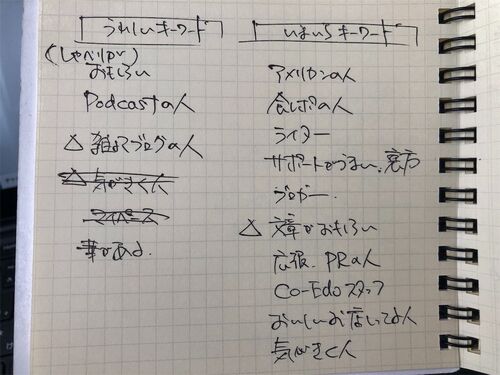 うれしいキーワード
(しゃべりが)
おもろい
Podcastの人
△ 雑なブログの人
△ 気がきく人
マイペース
華がある.
いまいちキーワード
アメリカンの人
食レポの人
ライター
サポートがうまい、裏方
ブロガー.
△ 文章がおもろい
広報、PRの人
Co-Edoスタッフ
おいしいお店しってる人
気がきく人